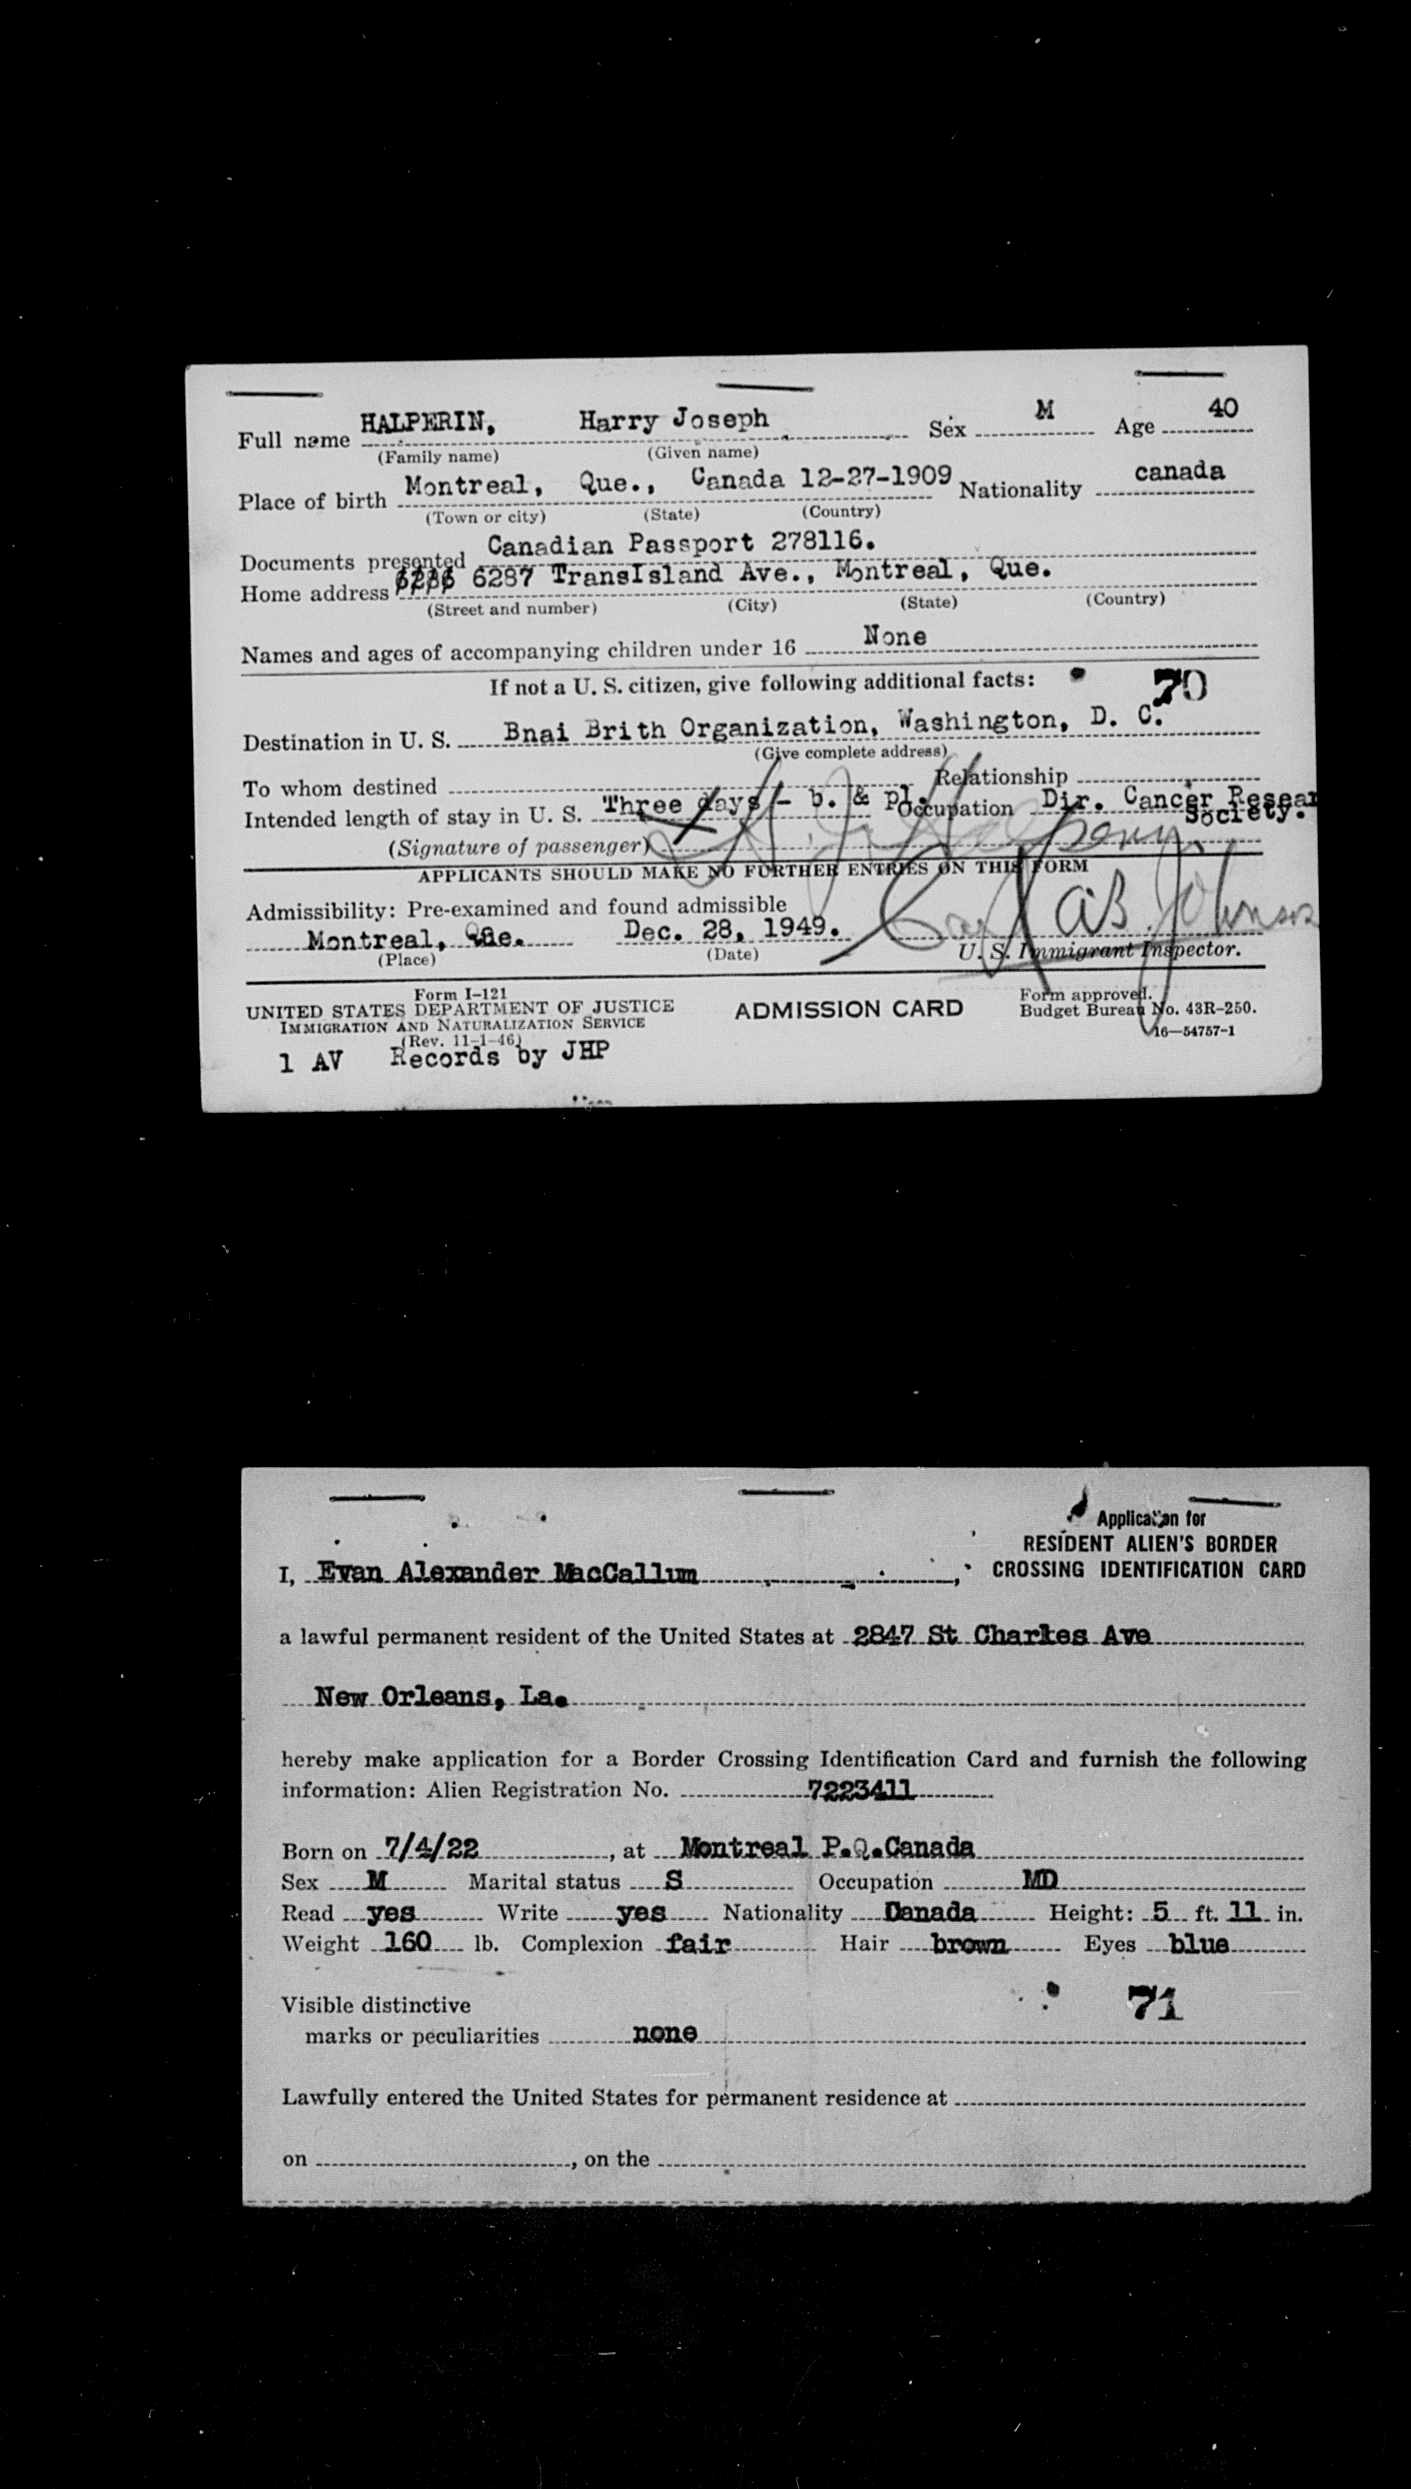 HALPERIN, Harry Joseph M 40
Full name Sex Age
(Family name) (Given name)
Montreal, Que., Canada 12-27-1909 canada
Place of birth Nationality
(Town or city) (State) (Country)
Canadian Passport 278116.
Documents presented
Home address 6287 TransIsland Ave., Montreal, Que.
(Street and number) (City) (State) (Country)
Names and ages of accompanying children under 16 None
If not a U. S. citizen, give following additional facts: 70
Destination in U. S. Bnai Brith Organization, Washington, D. C.
(Give complete address)
To whom destined Relationship
Intended length of stay in U. S. Three days - b. & pl. Occupation Dir. Cancer Resear
Society.
(Signature of passenger)
APPLICANTS SHOULD MAKE NO FURTHER ENTRIES ON THIS FORM
Admissibility: Pre-examined and found admissible
Montreal, Que. Dec. 28, 1949.
(Place) (Date) U. S. Immigrant Inspector.
Form I-121
UNITED STATES DEPARTMENT OF JUSTICE
IMMIGRATION AND NATURALIZATION SERVICE
(Rev. 11-1-46)
ADMISSION CARD
Form approved.
Budget Bureau No. 43R-250.
16—54757-1
1 AV Records by JHP
Application for
RESIDENT ALIEN'S BORDER
CROSSING IDENTIFICATION CARD
I, Evan Alexander MacCallum,
a lawful permanent resident of the United States at 2847 St Charles Ave
New Orleans, La.
hereby make application for a Border Crossing Identification Card and furnish the following
information: Alien Registration No. 7223411
Born on 7/4/22, at Montreal P.Q.Canada
Sex M Marital status S Occupation MD
Read yes Write yes Nationality Canada Height: 5 ft. 11 in.
Weight 160 lb. Complexion fair Hair brown Eyes blue
71
Visible distinctive
marks or peculiarities none
Lawfully entered the United States for permanent residence at
on , on the